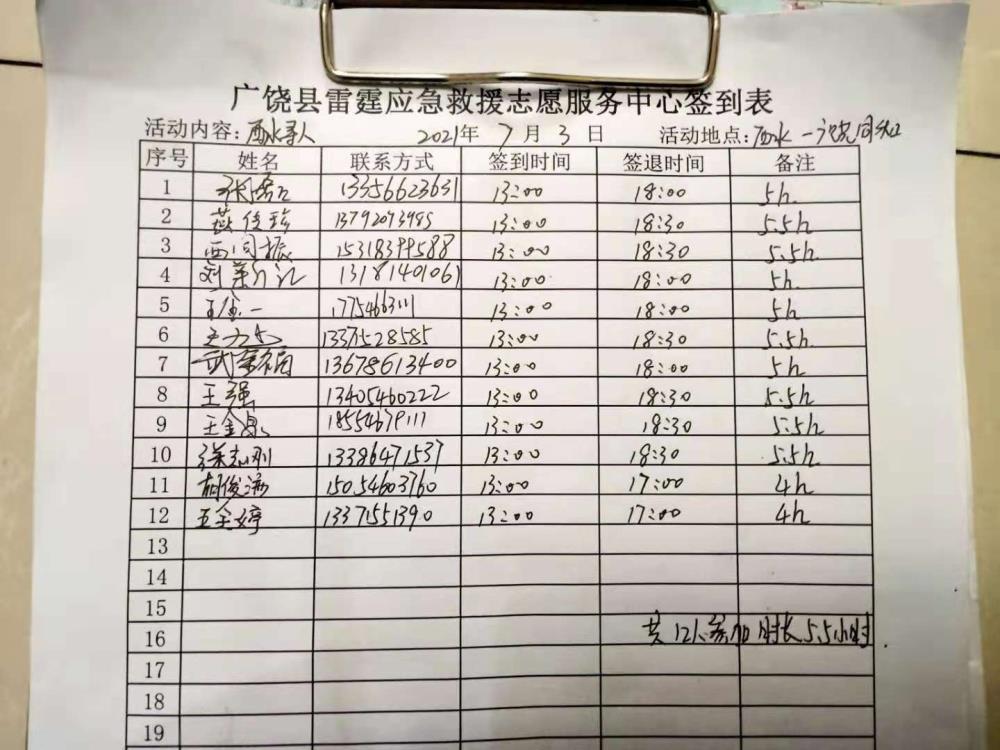 广饶县雷霆应急救援志愿服务中心签到表
活动内容: 酉水寻人 2021年 7月 3日 活动地点: 酉水一
序号 姓名 联系方式 签到时间 签退时间 备注
1 13356623631 13:00 18:00 5h.
2 燕俊珍 13792073985 13:00 18:30 5.5h
3 西同振 15318399588 13:00 18:30 5.5h
4 刘 13181401061 13:00 18:00 5h.
5 王金一 17754663111 13:00 18:00 5h
6 13371528585 13:00 18:30 5.5h.
7 武宗福 13678613400 13:00 18:00 5h
8 王强 13405460222 13:00 18:30 5.5h
9 王金 18554679111 13:00 18:30 5.5h
10 徐志刚 13386471537 13:00 18:30 5.5h
11 胡俊海 15054603760 13:00 17:00 4h
12 王全婷 13371551390 13:00 17:00 4h
13
14
15
16 共12人参加时长5.5小时
17
18
19